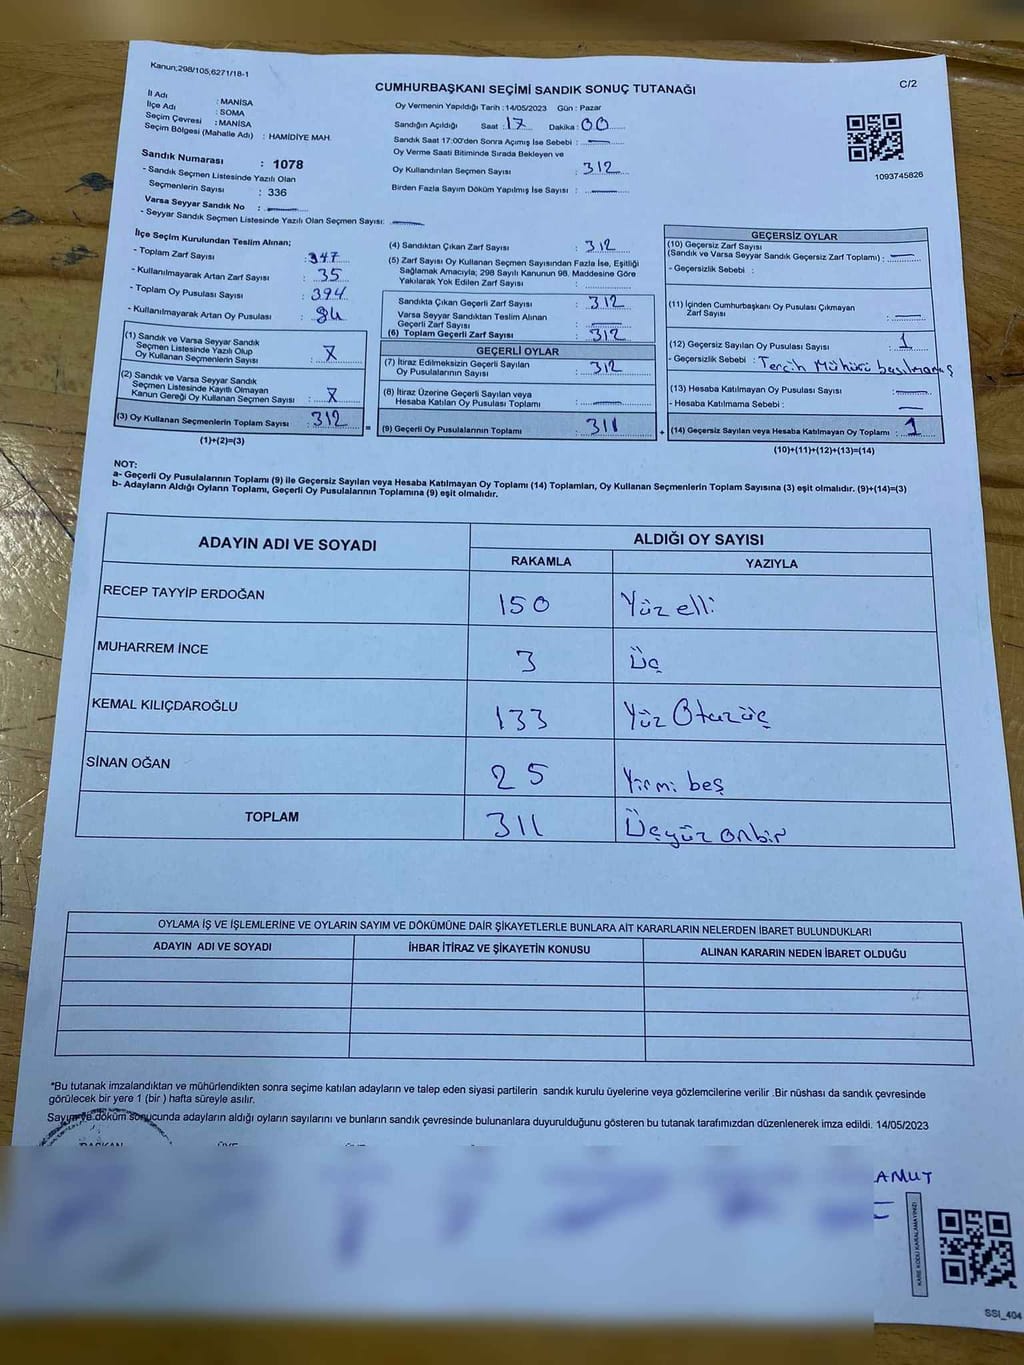 Kanun;298/105,6271/18-1
C/2
CUMHURBAŞKANI SEÇİMİ SANDIK SONUÇ TUTANAĞI
İl Adı : MANİSA
İlçe Adı : SOMA
Seçim Çevresi : MANİSA
Seçim Bölgesi (Mahalle Adı) : HAMİDİYE MAH.
Sandık Numarası : 1078
- Sandık Seçmen Listesinde Yazılı Olan
Seçmenlerin Sayısı : 336
Varsa Seyyar Sandık No :
- Seyyar Sandık Seçmen Listesinde Yazılı Olan Seçmen Sayısı:
Oy Vermenin Yapıldığı Tarih : 14/05/2023 Gün : Pazar
Sandığın Açıldığı Saat : 17 Dakika : 00
Sandık Saat 17:00'den Sonra Açımış İse Sebebi :
Oy Verme Saati Bitiminde Sırada Bekleyen ve
Oy Kullandırılan Seçmen Sayısı : 312
Birden Fazla Sayım Döküm Yapılmış İse Sayısı :
1093745826
İlçe Seçim Kurulundan Teslim Alınan;
- Toplam Zarf Sayısı : 347
- Kullanılmayarak Artan Zarf Sayısı : 35
- Toplam Oy Pusulası Sayısı : 394
- Kullanılmayarak Artan Oy Pusulası :
(1) Sandık ve Varsa Seyyar Sandık
Seçmen Listesinde Yazılı Olup
Oy Kullanan Seçmenlerin Sayısı : X
(2) Sandık ve Varsa Seyyar Sandık
Seçmen Listesinde Kayıtlı Olmayan
Kanun Gereği Oy Kullanan Seçmen Sayısı : X
(3) Oy Kullanan Seçmenlerin Toplam Sayısı : 312
(1)+(2)=(3)
(4) Sandıktan Çıkan Zarf Sayısı : 312
(5) Zarf Sayısı Oy Kullanan Seçmen Sayısından Fazla İse, Eşitliği
Sağlamak Amacıyla; 298 Sayılı Kanunun 98. Maddesine Göre
Yakılarak Yok Edilen Zarf Sayısı :
Sandıkta Çıkan Geçerli Zarf Sayısı : 312
Varsa Seyyar Sandıktan Teslim Alınan
Geçerli Zarf Sayısı :
(6) Toplam Geçerli Zarf Sayısı : 312
GEÇERLİ OYLAR
(7) İtiraz Edilmeksizin Geçerli Sayılan
Oy Pusulalarının Sayısı : 312
(8) İtiraz Üzerine Geçerli Sayılan veya
Hesaba Katılan Oy Pusulası Toplamı :
(9) Geçerli Oy Pusulalarının Toplamı : 311
GEÇERSİZ OYLAR
(10) Geçersiz Zarf Sayısı
(Sandık ve Varsa Seyyar Sandık Geçersiz Zarf Toplamı) :
- Geçersizlik Sebebi :
(11) İçinden Cumhurbaşkanı Oy Pusulası Çıkmayan
Zarf Sayısı :
(12) Geçersiz Sayılan Oy Pusulası Sayısı : 1
- Geçersizlik Sebebi : Tercih Mühürü basılmamış
(13) Hesaba Katılmayan Oy Pusulası Sayısı :
- Hesaba Katılmama Sebebi :
(14) Geçersiz Sayılan veya Hesaba Katılmayan Oy Toplamı : 1
(10)+(11)+(12)+(13)=(14)
NOT:
a- Geçerli Oy Pusulalarının Toplamı (9) ile Geçersiz Sayılan veya Hesaba Katılmayan Oy Toplamı (14) Toplamları, Oy Kullanan Seçmenlerin Toplam Sayısına (3) eşit olmalıdır. (9)+(14)=(3)
b- Adayların Aldığı Oyların Toplamı, Geçerli Oy Pusulalarının Toplamına (9) eşit olmalıdır.
ADAYIN ADI VE SOYADI ALDIĞI OY SAYISI
RAKAMLA YAZIYLA
RECEP TAYYİP ERDOĞAN 150 Yüz elli
MUHARREM İNCE 3 Üç
KEMAL KILIÇDAROĞLU 133 Yüz Otuz üç
SİNAN OĞAN 25 Yirmi beş
TOPLAM 311 Üçyüz onbir
OYLAMA İŞ VE İŞLEMLERİNE VE OYLARIN SAYIM VE DÖKÜMÜNE DAİR ŞİKAYETLERLE BUNLARA AİT KARARLARIN NELERDEN İBARET BULUNDUKLARI
ADAYIN ADI VE SOYADI İHBAR İTİRAZ VE ŞİKAYETİN KONUSU ALINAN KARARIN NEDEN İBARET OLDUĞU
*Bu tutanak imzalandıktan ve mühürlendikten sonra seçime katılan adayların ve talep eden siyasi partilerin sandık kurulu üyelerine veya gözlemcilerine verilir .Bir nüshası da sandık çevresinde
görülecek bir yere 1 (bir ) hafta süreyle asılır.
Sayım ve döküm sonucunda adayların aldığı oyların sayılarını ve bunların sandık çevresinde bulunanlara duyurulduğunu gösteren bu tutanak tarafımızdan düzenlenerek imza edildi. 14/05/2023
BAŞKAN
AMUT
KARE KODU KARALAMAYINIZ!
SSI_404